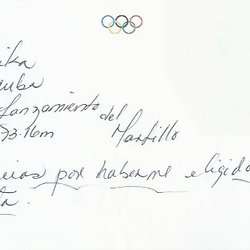 ika
uba
Lanzamiento del
73.16m Martillo
cias por haberme eligido
ta.